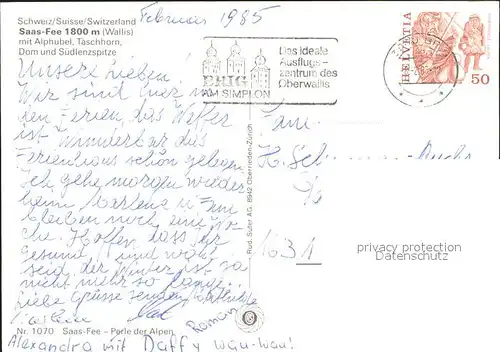 Februar 1985
Schweiz/Suisse/Switzerland
Saas-Fee 1800 m (Wallis)
mit Alphubel, Täschhorn,
Dom und Südlenzspitze
BRIG
AM SIMPLON
Das ideale
Ausflugs-
zentrum des
Oberwallis
HELVETIA
50
Unsere lieben!
Wir sind hier in
den Ferien, das Wetter
ist Wunderbar das
Ferienhaus schön gelegen
Ich gehe morgen wieder
heim Marlene
bleiben noch eine Wo-
che. Hoffen, dass ihr
gesund und wohl
seid, der Winter ist ja
nicht mehr so lange.
liebe Grüsse senden
Roman
Alexandra mit Daffy wau-wau!
Fam.
1631
Rud. Suter AG, 8942 Oberrieden-Zürich
privacy protection
Datenschutz
Nr. 1070 Saas-Fee – Perle der Alpen